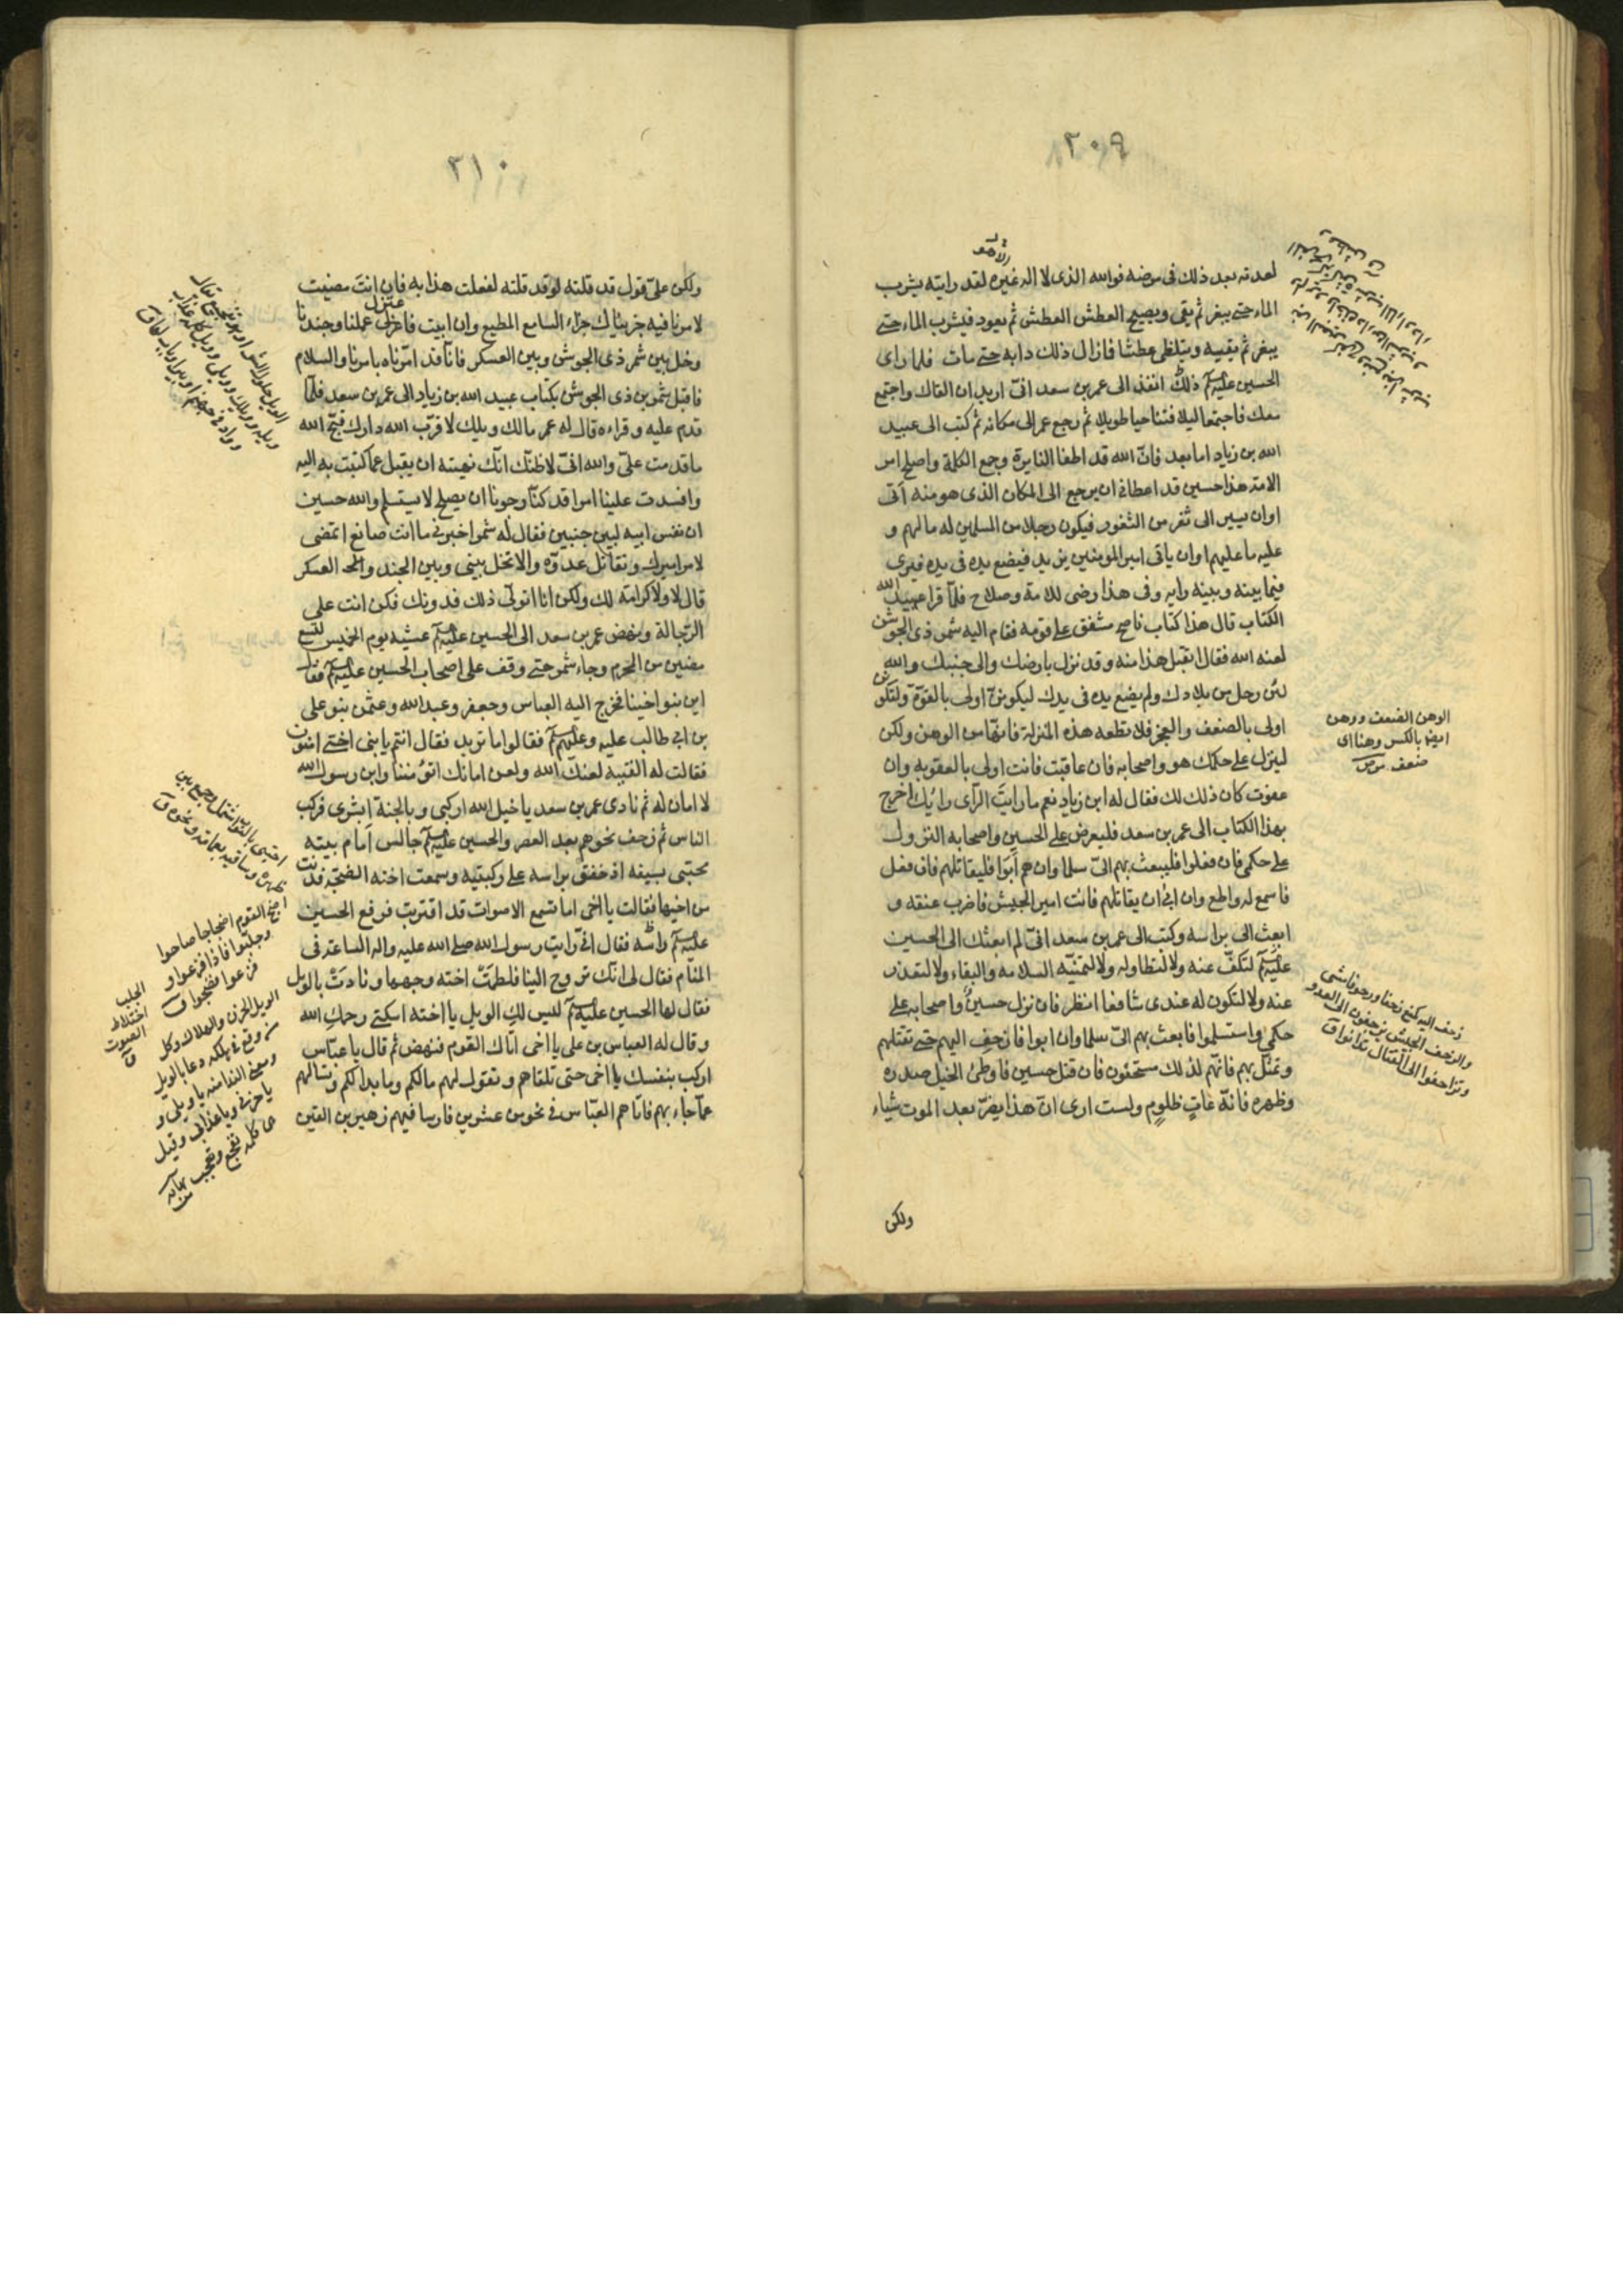 ٢٠٩
لعدته بعد ذلك في مرضه فوالله الذي لا اله غيره لقد رايته يشرب
الماء حتى يبغر ثم يقي ويصيح العطش العطش ثم يعود فيشرب الماء حتى
يبغر ثم يقيه ويتلظى عطشا فما زال ذلك دابه حتى مات فلما راى
الحسين عليه السلم ذلك انفذ الى عمر بن سعد اني اريد ان القاك واجتمع
معك فاجتمعا ليلا فتناجيا طويلا ثم رجع عمر الى مكانه ثم كتب الى عبيد
الله بن زياد اما بعد فانّ الله قد اطفا النايرة وجمع الكلمة واصلح امر
الامة هذا حسين قد اعطاني ان يرجع الى المكان الذي هو منه اتى
او ان يسير الى ثغر من الثغور فيكون رجلا من المسلمين له ما لهم و
عليه ما عليهم او ان ياتي امير المومنين يزيد فيضع يده في يده فيرى
فيما بينه وبينه رايه وفي هذا رضى للامة وصلاح فلمّا قرا عبيد الله
الكتاب قال هذا كتاب ناصح مشفق على قومه فقام اليه شمر بن ذي الجوشن
لعنه الله فقال اتقبل هذا منه وقد نزل بارضك والى جنبك والله
لئن رحل من بلادك ولم يضع يده في يدك ليكوننّ اولى بالقوّة ولتكونن
اولى بالضعف والعجز فلا تطعه هذه المنزلة فانها من الوهن ولكن
لينزل على حكمك هو واصحابه فان عاقبت فانت اولى بالعقوبه وان
عفوت كان ذلك لك فقال له ابن زياد نعم ما رايتَ الرّأى رائك اخرج
بهذا الكتاب الى عمر بن سعد فليعرض على الحسين واصحابه النزول
على حكمي فان فعلوا فليبعث بهم اليّ سلما وان هم اَبَوا فليقاتلهم فان فعل
فاسمع له واطع وان ابى ان يقاتلهم فانت امير الجيش فاضرب عنقه و
ابعث الى براسه وكتب الى عمر بن سعد انّي لم ابعثك الى الحسين
عليه السلم لتكفّ عنه ولا لتطاوله ولا لتمنّيه السلامه والبقاء ولا لتعتذر
عنه ولا لتكون له عندي شافعا انظر فان نزل حسين واصحابه على
حكمي واستسلموا فابعث بهم اليّ سلما وان ابوا فازحف اليهم حتى تقتلهم
وتمثّل بهم فانّهم لذلك مستحقون فان قتل حسين فاوطئ الخيل صدره
وظهره فانّه عاتٍ ظلومٍ ولست ارى انّ هذا يضرّ بعد الموت شياء
الوهن الضعف ووهن
ايضا بالكسر وهنا اى
ضعف ص
زحف اليه كمنع زحفا وزحوفا مشى
والزحف الجيش يزحفون الى العدو
وتزاحفوا الى القتال تدانوا ق
ولكن
٢١٠
ولكن عليّ قول قد قلته لو قد قلته لفعلت هذا به فان انتَ مضيت
لامرنا فيه جزيناك جزاء السامع المطيع وان ابيت فاعتزل عملنا وجندنا
وخل بين شمر ذي الجوشن وبين العسكر فانّا قد امّرناه بامرنا والسلام
فاقبل شمر بن ذي الجوشن بكتاب عبيد الله بن زياد الى عمر بن سعد فلمّا
قدم عليه وقراءه قال له عمر مالك ويلك لا قرّب الله دارك قبّح الله
ما قدمت عليّ والله انّي لاظنّك انّك نهيته ان يقبل عما كتبت به اليه
وافسدت علينا امرا قد كنّا رجونا ان يصلح لا يستسلم والله حسين
ان نفس ابيه لبين جنبيه فقال له شمر اخبرني ما انت صانع اتمضى
لامر اميرك وتقاتل عدوّه والا تخل بيني وبين الجند والعسكر
قال لا ولا كرامة لك ولكن انا اتولّى ذلك فدونك فكن انت على
الرّجالة ونهض عمر بن سعد الى الحسين عليه السلم عشيه يوم الخميس لتسع
مضين من المحرم وجاء شمر حتى وقف على اصحاب الحسين عليه السلم فقال
اين بنو اختنا فخرج اليه العباس وجعفر وعبد الله وعثمن بنو على
بن ابي طالب عليه وعليهم السلم فقالوا ما تريد فقال انتم يا بني اختي امنون
فقالت له الفتيه لعنك الله ولعن امانك اتؤمننا وابن رسول الله
لا امان له ثم نادى عمر بن سعد يا خيل الله اركبي وبالجنة ابشرى فركب
الناس ثم زحف نحوهم بعد العصر والحسين عليه السلم جالس اَمام بيته
محتبى بسيفه اذ خفق براسه على ركبتيه وسمعت اخته الضجّة فدنت
من اخيها فقالت يا اخى اما تسمع الاصوات قد اقتربت فرفع الحسين
عليه السلم راسه فقال انّي رايت رسول الله صلى الله عليه واله الساعة في
المنام فقال لى انّك تروح الينا فلطمَتْ اخته وجهها ونادَتْ بالويل
فقال لها الحسين عليه السلم ليس لكِ الويل يا اخته اسكتي رحمكِ الله
وقال له العباس بن على يا اخى اتاك القوم فنهض ثم قال يا عبّاس
اركب بنفسك يا اخى حتى تلقاهم وتقول لهم مالكم وما بدا لكم وتسالهم
عمّا جاء بهم فاتاهم العبّاس في نحو من عشرين فارسا فيهم زهير بن القين
احتبى بالثوب اشتمل او جمع بين
ظهره وساقيه بعمامة ونحوها ق
اضجّ القوم اضجاجا صاحوا
وجلّبوا فاذا جزعوا و
فزعوا فضجوا ق
الجلب
اختلاط
الصوت
ق
الويل الحزن والهلاك وكل
من وقع في هلكه دعا بالويل
ومعنى الندا منه يا ويلى و
يا حزني ويا عذابي وقيل
هي كلمة تفجع وتعجب نهاية